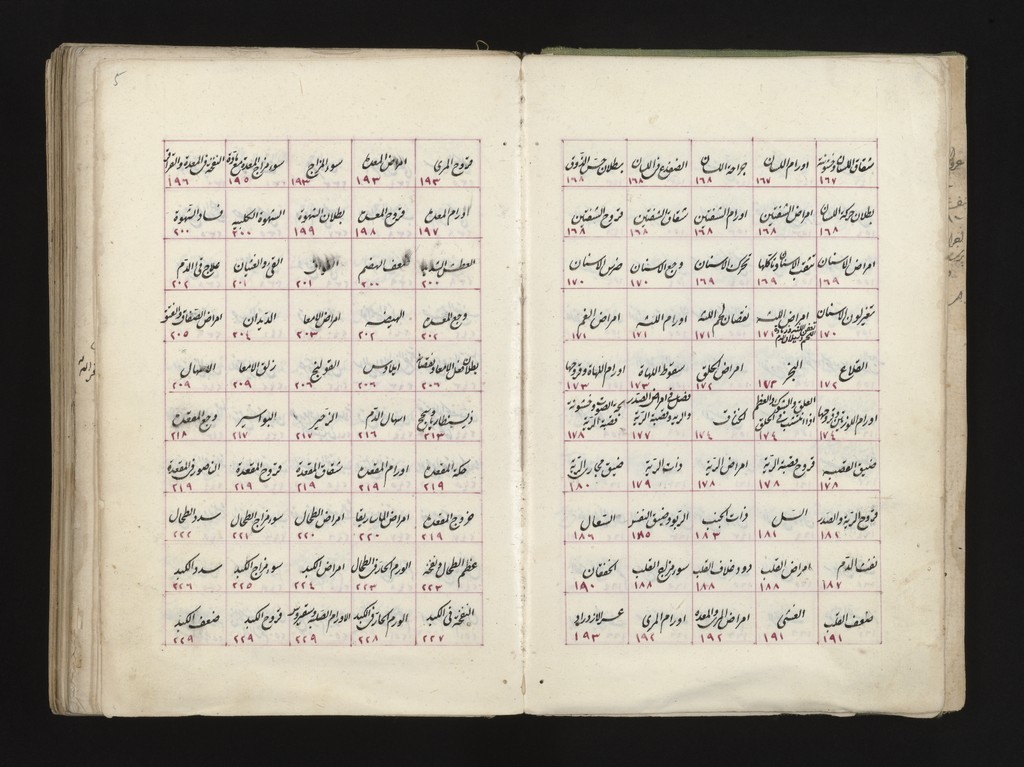 شقاق اللسان وخشونته اورام اللسان جراحة اللسان الضفدع فى اللسان بطلان حس الذوق
١٦٧ ١٦٧ ١٦٨ ١٦٨ ١٦٨
بطلان حركة اللسان امراض الشفتين اورام الشفتين شقاق الشفتين قروح الشفتين
١٦٨ ١٦٨ ١٦٨ ١٦٨ ١٦٨
امراض الاسنان تثقب الاسنان وتاكلها تحرك الاسنان وجع الاسنان ضرس الاسنان
١٦٩ ١٦٩ ١٦٩ ١٧٠ ١٧٠
تغير لون الاسنان امراض اللثة نقصان لحم اللثة اورام اللثة امراض الفم
١٧٠ ١٧١ ١٧١ ١٧١ ١٧١
القلاع البخر امراض الحلق سقوط اللهاة اورام اللهاة وقروحها
١٧٢ ١٧٢ ١٧٢ ١٧٣ ١٧٣
اورام اللوزتين وقروحها العلق والشوك والعظم اذا نشب فى الحلق الخناق فصل فى امراض الصدر والرية وقصبة الرية بحة الصوت وخشونة قصبة الرية
١٧٤ ١٧٤ ١٧٤ ١٧٧ ١٧٨
ضيق القصبه قروح قصبة الرية امراض الرية ذات الرية ضيق مجارى الرية
١٧٨ ١٧٨ ١٧٨ ١٧٩ ١٨٠
قروح الرية والصدر السل ذات الجنب الربو وضيق النفس السعال
١٨١ ١٨١ ١٨٣ ١٨٥ ١٨٦
نفث الدم امراض القلب درد غلاف القلب سوء مزاج القلب الخفقان
١٨٧ ١٨٨ ١٨٨ ١٨٨ ١٩٠
ضعف القلب الغشى امراض المرى والمعدة اورام المرى عسر الازدراد
١٩١ ١٩١ ١٩٢ ١٩٢ ١٩٣
5
قروح المرى امراض المعدة سوء المزاج سوء مزاج المعدة مع مادة النفخة فى المعدة والقراقر
١٩٣ ١٩٣ ١٩٣ ١٩٥ ١٩٦
اورام المعدة قروح المعدة بطلان الشهوة الشهوة الكلبية فساد الشهوة
١٩٧ ١٩٨ ١٩٩ ٢٠٠ ٢٠٠
العطش الشديد ضعف الهضم الفواق القئ والغثيان علاج قئ الدم
٢٠٠ ٢٠٠ ٢٠١ ٢٠١ ٢٠٢
وجع المعدة الهيضه امراض الامعا الديدان امراض الصفاق والفتق
٢٠٢ ٢٠٢ ٢٠٣ ٢٠٤ ٢٠٥
ايلاوس القولنج زلق الامعا الاسهال
٢٠٦ ٢٠٦ ٢٠٦ ٢٠٩ ٢٠٩
ذوسنطاريا وسحج اسهال الدم الزحير البواسير وجع المقعدة
٢١٣ ٢١٦ ٢١٧ ٢١٧ ٢١٨
حكة المقعدة اورام المقعدة شقاق المقعدة قروح المقعدة الناصور فى المقعدة
٢١٩ ٢١٩ ٢١٩ ٢١٩ ٢١٩
خروج المقعدة امراض الماساريقا امراض الطحال سوء مزاج الطحال سدد الطحال
٢١٩ ٢٢٠ ٢٢٠ ٢٢١ ٢٢٢
عظم الطحال ونفخه الورم الحار فى الطحال امراض الكبد سوء مزاج الكبد سدد الكبد
٢٢٣ ٢٢٣ ٢٢٤ ٢٢٥ ٢٢٦
النفخة فى الكبد الورم الحار فى الكبد الاورام الصلبة وسقيروس قروح الكبد ضعف الكبد
٢٢٧ ٢٢٨ ٢٢٩ ٢٢٩ ٢٢٩